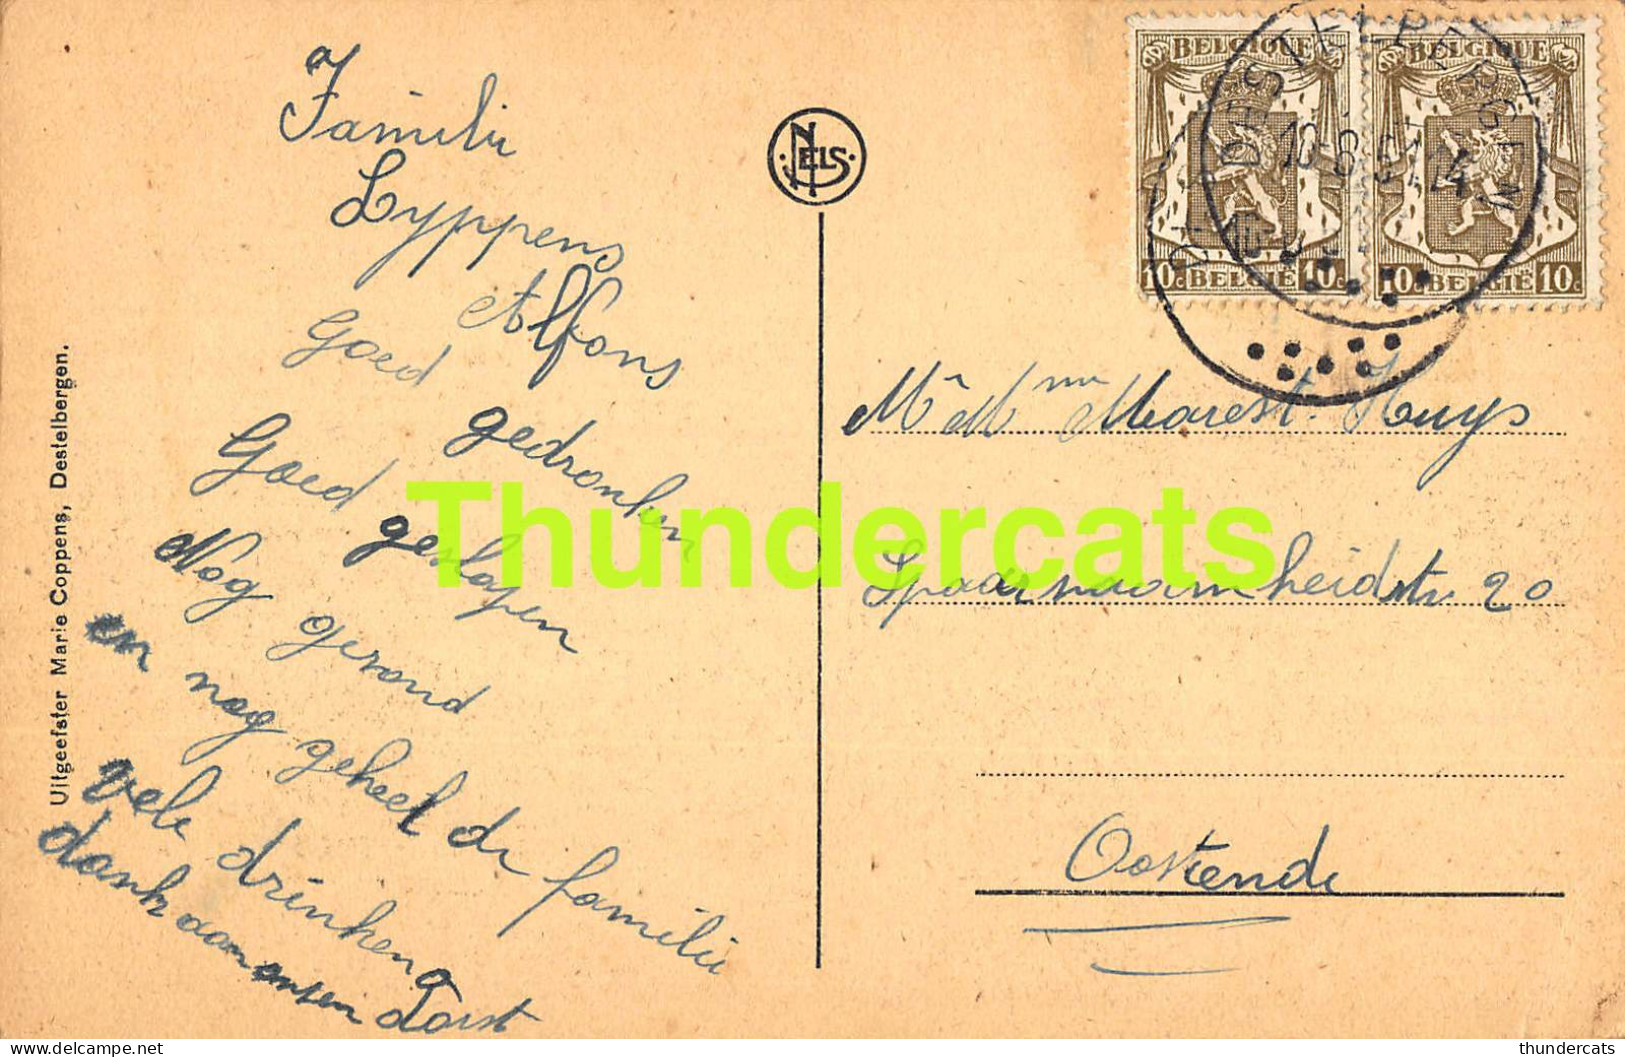 Familie
Lyppens
Alfons
Goed gedronken
Goed geslapen
Nog gezond
en nog geheel de familie
vele drinken
dank aan onsen dorst
Uitgeefster Marie Coppens, Destelbergen.
NELS
BELGIQUE
10c BELGIË 10c
BELGIQUE
10c BELGIË 10c
DESTELBERGEN
Mr Mme Marest. Huys
Spaarnaamheidstr 20
Oostende
Thundercats
thundercats